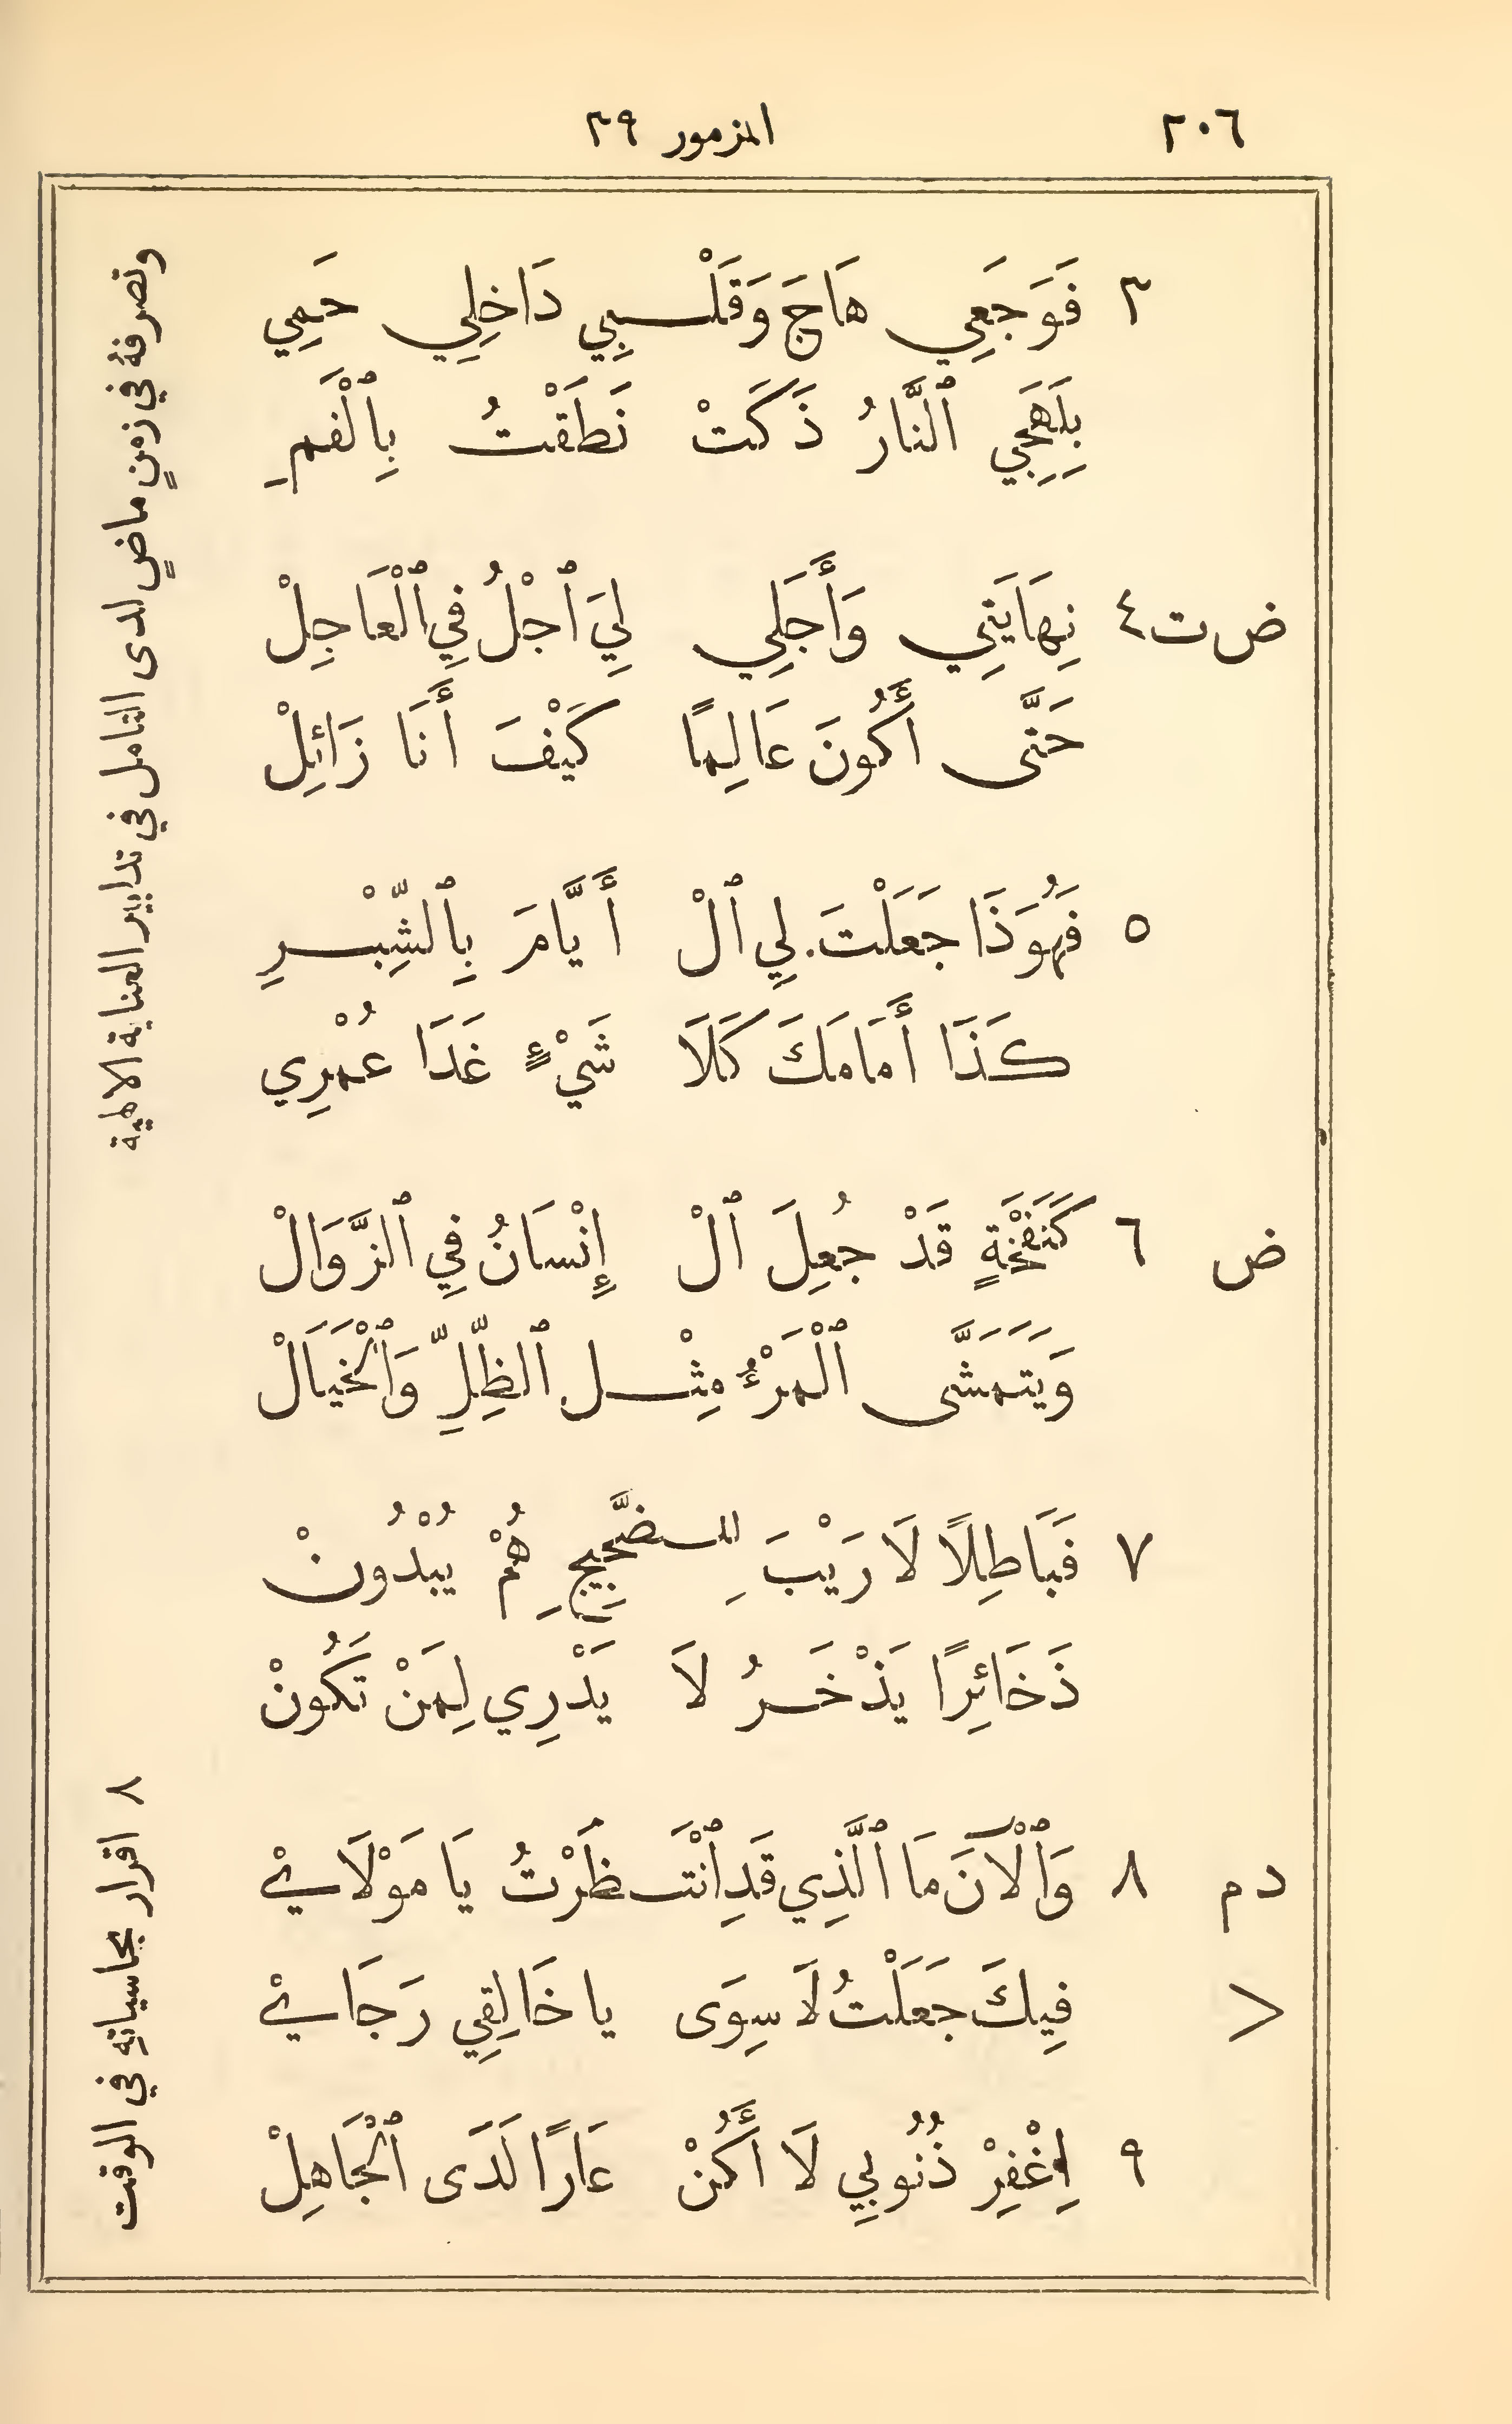 ٢٠٦ المزمور ٣٩
٣ فَوَجَعِي هَاجَ وَقَلْبِي دَاخِلِي حَمِي
بِلَهَجِي ٱلنَّارُ ذَكَتْ نَطَقْتُ بِٱلْفَمِ
ض ت ٤ نِهَايَتِي وَأَجَلِي لِيَ ٱجْلُ فِي ٱلْعَاجِلْ
حَتَّى أَكُونَ عَالِمًا كَيْفَ أَنَا زَائِلْ
٥ فَهُوَذَا جَعَلْتَ لِي ٱلْ أَيَّامَ بِٱلشِّبْرِ
كَذَا أَمَامَكَ كَلَا شَيْءٍ غَدَا عُمْرِي
ض ٦ كَنَفْخَةٍ قَدْ جُعِلَ ٱلْ إِنْسَانُ فِي ٱلزَّوَالْ
وَيَتَمَشَّى ٱلْمَرْءُ مِثْلَ ٱلظِّلِّ وَٱلْخَيَالْ
٧ فَبَاطِلًا لَا رَيْبَ لِلضَّجِيجِ هُمْ يُبْدُونْ
ذَخَائِرًا يَذْخَرُ لَا يَدْرِي لِمَنْ تَكُونْ
د م ٨ وَٱلْآنَ مَا ٱلَّذِي قَدِ ٱنْتَظَرْتُ يَا مَوْلَايْ
> فِيكَ جَعَلْتُ لَا سِوَى يا خَالِقِي رَجَايْ
٩ اِغْفِرْ ذُنُوبِي لَا أَكُنْ عَارًا لَدَى ٱلْجَاهِلْ
وتصرفهُ في زمنٍ ماضٍ لدى التامل في تدابير العناية الالهية
٨ اقرار بحاسياتهِ في الوقت